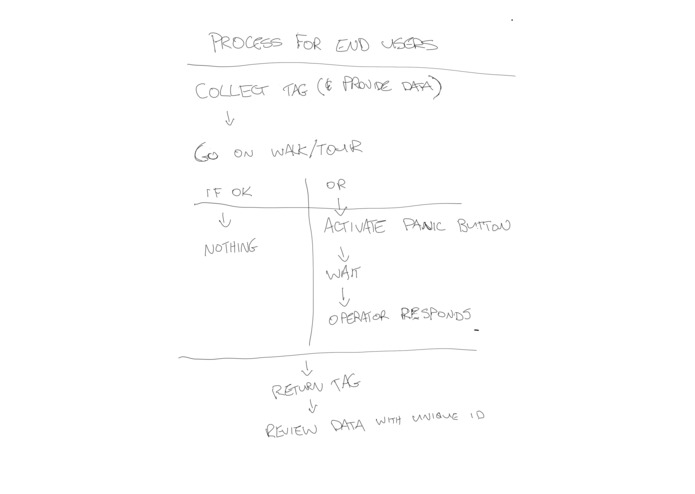 PROCESS FOR END USERS
COLLECT TAG (& PROVIDE DATA)
↓
GO ON WALK/TOUR
IF OK
↓
NOTHING
OR
↓
ACTIVATE PANIC BUTTON
↓
WAIT
↓
OPERATOR RESPONDS
↓
RETURN TAG
↓
REVIEW DATA WITH UNIQUE ID